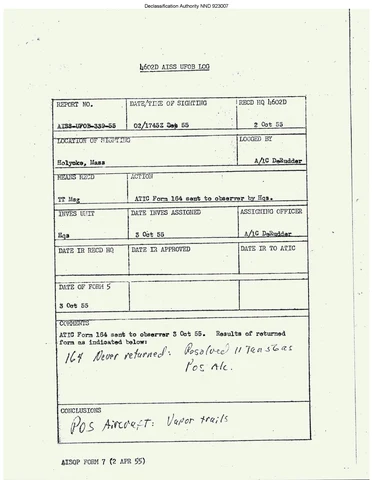 Declassification Authority NND 923007
4602D AISS UFOB LOG
REPORT NO.
DATE/TIME OF SIGHTING
RECD HQ 4602D
AISS-UFOB-339-55
02/1745Z Oct 55
2 Oct 55
LOCATION OF SIGHTING
LOGGED BY
Holyoke, Mass
A/1C DeRudder
MEANS RECD
ACTION
TT Msg
ATIC Form 164 sent to observer by Hqs.
INVES UNIT
DATE INVES ASSIGNED
ASSIGNING OFFICER
Hqs
3 Oct 55
A/1C DeRudder
DATE IR RECD HQ
DATE IR APPROVED
DATE IR TO ATIC
DATE OF FORM 5
3 Oct 55
COMMENTS
ATIC Form 164 sent to observer 3 Oct 55. Results of returned
form as indicated below:
164 Never returned: Resolved 11 Jan 56 as
Pos A/c.
CONCLUSIONS
POS Aircraft: Vapor trails
AISOP FORM 7 (2 APR 55)